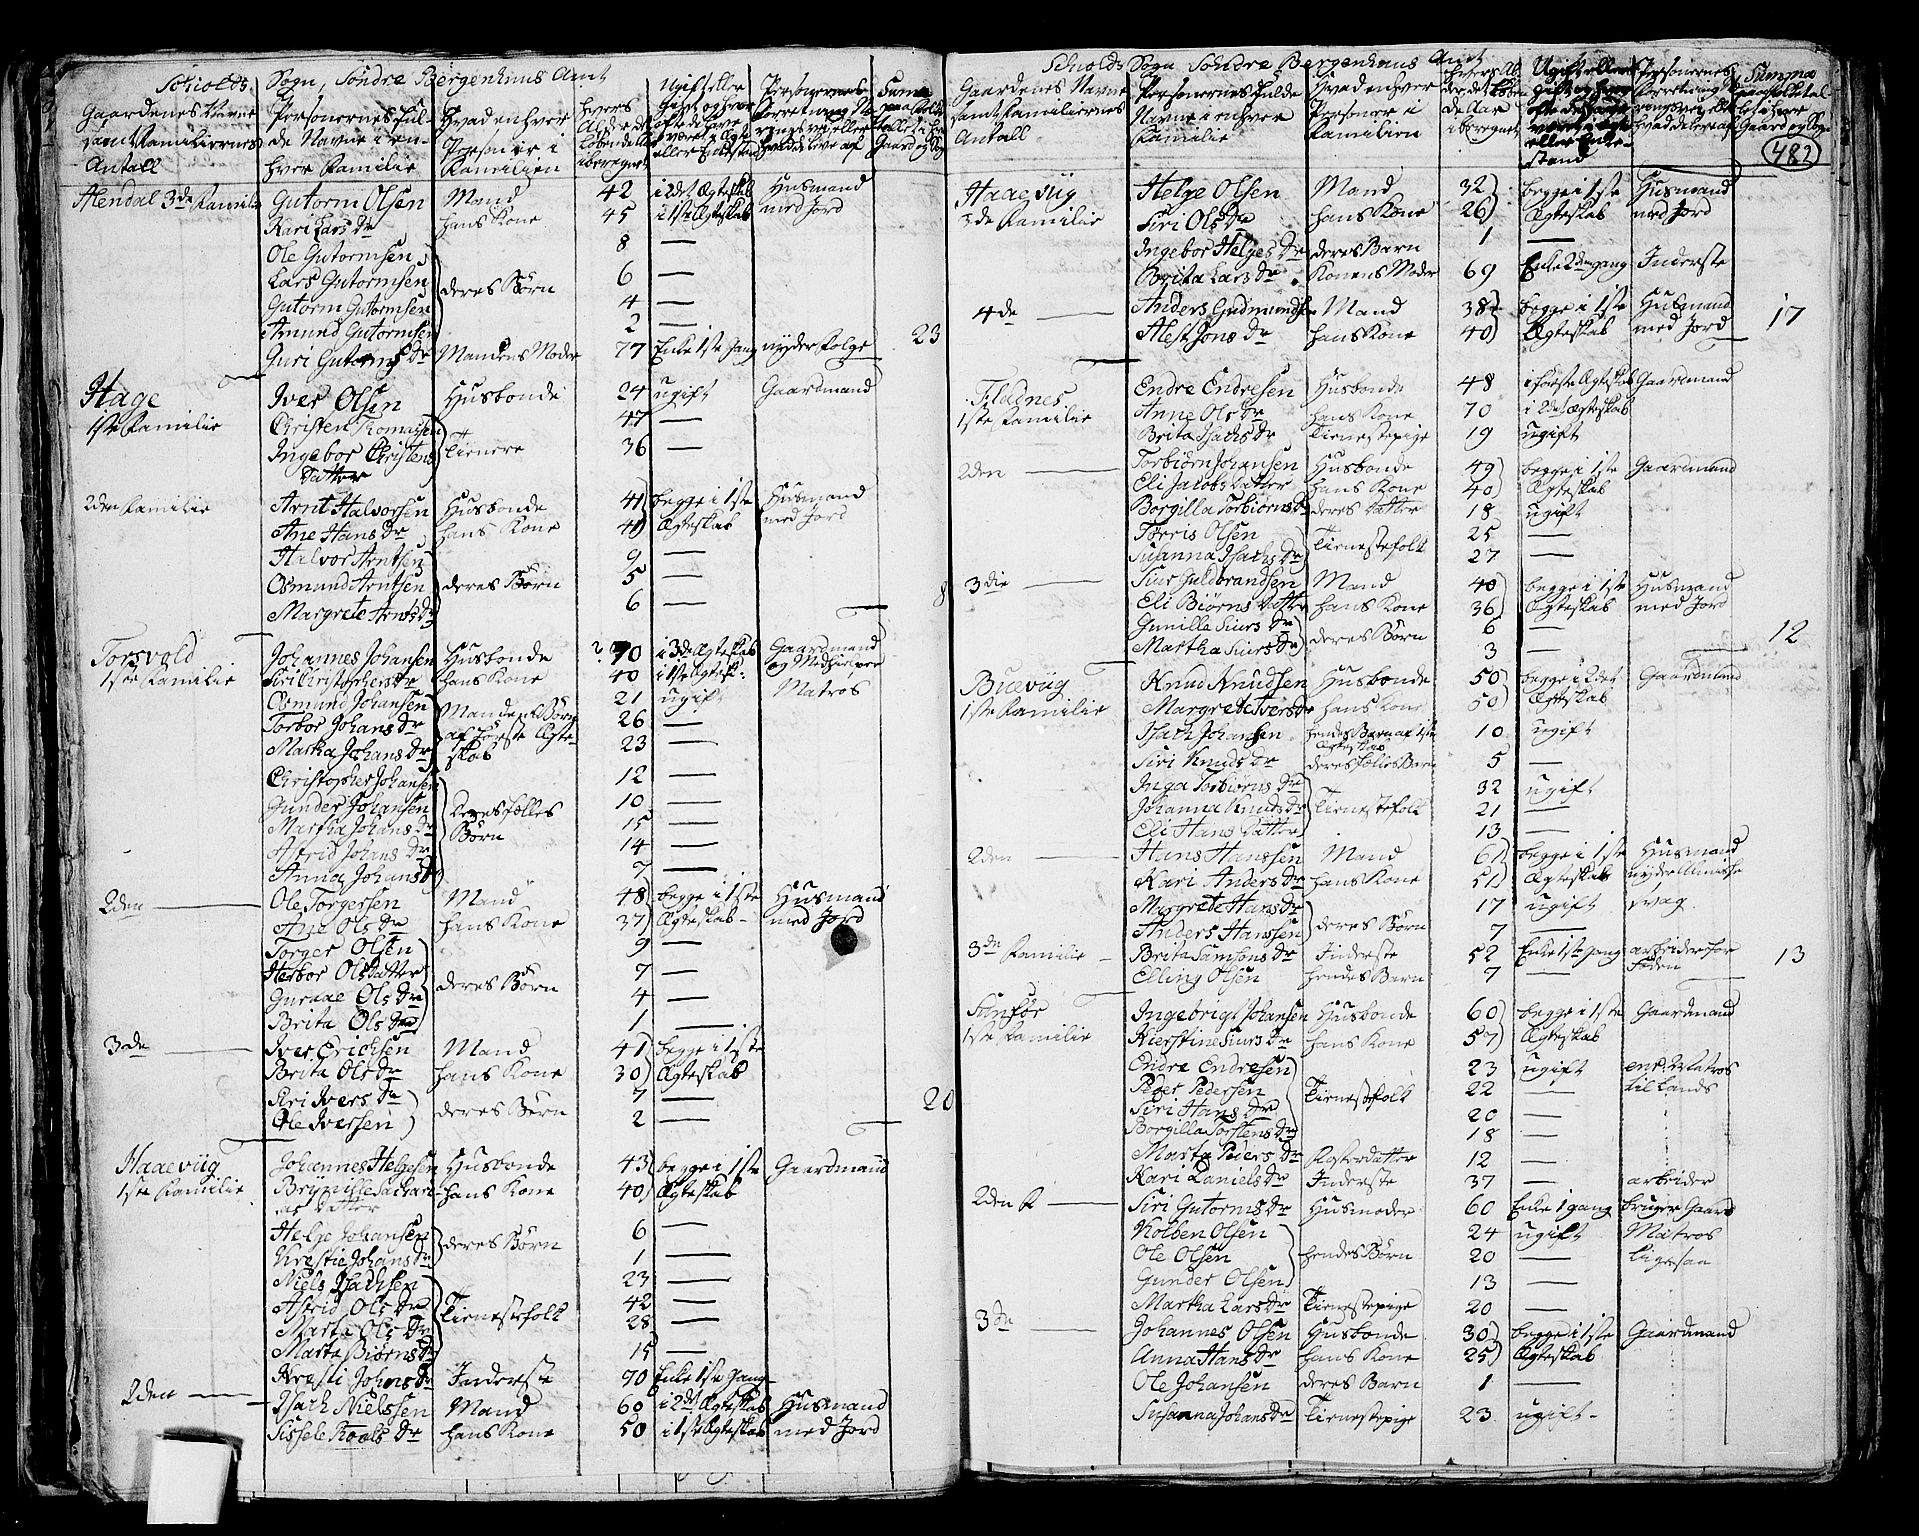 Schiolds Sogn, Söndre Bergenhuus Amt
Gaardenes Navne samt Familiernes Antall
Personernes Fulde Navne i enhver Familie
Hvad enhver Person er i Familien
Hvers Alder det løbende Aar iberegnet
Ugift eller Gift
Personernes Forretning Næringsvej eller hvad de leve af
Mendal 3de Familie Gutorm Olsen Mand 42 i 2det Ægteskab Husmand
Kari Lars Dr hans Kone 45 i 1ste Ægteskab med Jord
Ole Gutormsen 8 —
Lars Gutormsen deres Börn 6 —
Gutorm Gutormsen 4 —
Amund Gutormsen 2 —
Guri Gutorms Dr Mandens Moder 77 Enke 1ste Gang nyder Folge 23
Hage Iver Olsen Husbonde 24 ugift Gaardmand
1ste Familie Christen Thomassen 47 —
Ingebor Christens Tienere 36 —
Datter
2den Familie Arnt Halvorsen Husbonde 41 begge i 1ste Husmand
Ane Hans Dr hans Kone 40 Ægteskab med Jord
Halvor Arntsen 9 —
Osmund Arntsen deres Börn 5 —
Margrete Arnts Dr 6 — 8
Torsvold Johannes Johansen Husbonde 70 i 3de Ægteskab Gaardmand
1ste Familie Siri Christophers Dr hans Kone 40 i 1ste Ægtesk: og Medhielper
Osmund Johansen 21 ugift Matros
Torbor Johans Dr Mandens Börn 26 —
Martha Johans Dr af første Ægteskab 23 —
Christopher Johansen 12 —
Gunder Johansen Deres fælles 10 —
Martha Johans Dr Börn 15 —
Astrid Johans Dr 14 —
Anna Johans Dr 7 —
2den — Ole Torgersen Mand 48 begge i 1ste Husmand
Ane Ols Dr hans Kone 37 Ægteskab med Jord
Torger Olsen 9 —
Herbor Olsdatter deres Börn 7 —
Guroae Ols Dr 4 —
Brita Ols Dr 1 —
3de — Iver Erichsen Mand 41 begge i 1ste
Brita Ols Dr hans Kone 30 Ægteskab
Siri Ivers Dr 7 —
Ole Iversen deres Börn 2 — 20
Haaevüg Johannes Helgesen Husbonde 43 begge i 1ste Gaardmand
1ste Familie Brynille Sachari- hans Kone 40 Ægteskab
as Datter
Helge Johansen 6 —
Krestie Johans Dr deres Börn 1 —
Niels Isachsen 23 —
Astrid Ols Dr Tienestefolk 42 —
Marta Ols Dr 28 —
Marta Biörns Dr 15 —
Kresti Johns Dr Inderste 90 Enke 1ste Gang
2den — Isach Nielssen Mand 60 i 2det Ægteskab Husmand
Sissele Roals Dr hans Kone 50 i 1ste Ægteskab med Jord
Schiolds Sogn Söndre Bergenhuus Amt
Gaardenes Navne samt Familiernes Antall
Personernes Fulde Navne i enhver Familie
Hvad enhver Person er i Familien
482
Haaevüg Helge Olsen Mand 32 begge i 1ste Husmand
3de Familie Siri Ols Dr hans Kone 26 Ægteskab med Jord
Ingebor Helges Dr deres Barn 1 —
Brita Lars Dr Konens Moder 69 Enke 2den gang Inderste
4de — Anders Gudmundsen Mand 38 begge i 1ste Husmand 17
Alest Jons Dr hans Kone 40 Ægteskab med Jord
Fladnes Endre Endresen Husbonde 48 i første Ægteskab Gaardmand
1ste Familie Anne Ols Dr hans Kone 70 i 2det Ægteskab
Brita Isachs Dr Tienestepige 19 ugift
2den — Torbiörn Johansen Husbonde 49 begge i 1ste Gaardmand
Eli Jacobs Datter hans Kone 40 Ægteskab
Borgilla Torbiörns Dr deres Datter 18 ugift
Torris Olsen 25 —
Susanna Isachs Dr Tienestefolk 27 —
3die — Siur Guldbrandsen Mand 40 begge i 1ste Husmand
Eli Biörns Datter hans Kone 36 Ægteskab med Jord
Gunilla Siurs Dr 6 —
Martha Siurs Dr deres Börn 3 — 12
Buevüg Knud Knudsen Husbonde 50 begge i 2det Gaardmand
1ste Familie Margrete Ivers Dr hans Kone 50 Ægteskab
Isach Johansen hendes Barn af 1ste Ægteskab 10 ugift
Siri Knuds Dr deres fælles Barn 5 —
Inga Torbiörns Dr 32 ugift
Johanna Knuds Dr Tienestefolk 21 —
Eli Hans Datter 13 —
2den — Hans Hanssen Mand 61 begge i 1ste Husmand
Kari Anders Dr hans Kone 51 Ægteskab nyder Almisse
Margrete Hans Dr 17 ugift svag
Anders Hanssen deres Börn 7 —
3de Familie — Brita Samsons Dr Inderste 52 Enke 1ste gang arbeider for 13
Elling Olsen hendes Barn 7 — Föden
Sunför Ingebrigt Johansen Husbonde 60 begge i 1ste Gaardmand
1ste Familie Kierstine Siurs Dr hans Kone 57 Ægteskab
Endre Endresen 23 ugift enr. Matros
Peder Pedersen Tienestefolk 22 — til Lands
Siri Hans Dr 20 —
Borgilla Torstens Dr 18 —
Marta Peders Dr Fosterdatter 12 —
Kari Daniels Dr Inderste 37 — arbeider
2den F — Siri Gutorms Dr Husmoder 60 Enke 1 gang bruger Gaard
Kolben Olsen 24 ugift Matros
Ole Olsen hendes Börn 20 — ligesaa
Gunder Olsen 13 —
Martha Lars Dr Tienestepige 20 —
3de — Johannes Olsen Husbonde 30 begge i 1ste Gaardmand
Anna Hans Dr hans Kone 25 Ægteskab
Ole Johansen deres Barn 1 —
Susanna Johans Dr Tienestepige 23 ugift